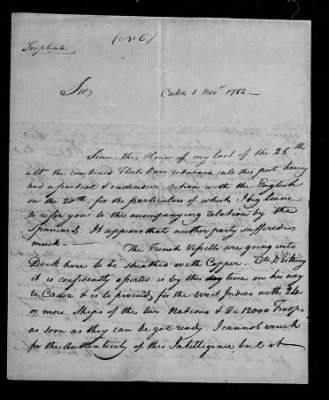 (No 6)
Triplicate
Sir
Cadiz 1 Novr 1782 —
Since the Honor of my last of the 25th
ulto the combined Fleets have returned into this port, having
had a partial & indecisive action with the English
on the 20th, for the particulars of which I beg leave
to refer you to the accompanying relation by the
Spaniards. It appears that neither party suffered
much. —
The French Vessells are going into
Dock here to be sheathed with Copper. Ct D'Estaing
it is confidently asserted, is by this time on his way
to Cadiz & is to proceed for the West Indies with 24
or more Ships of the two Nations & 12000 Troops
as soon as they can be got ready. I cannot vouch
for the Authenticity of this Intelligence, but it